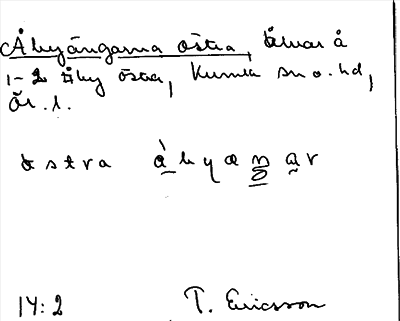 Åbyängarna östra, åkrar å
1-2 Åby östra, Kumla sn o. hd,
Ör. l.
östra åbyäŋar
14:2 T. Ericsson